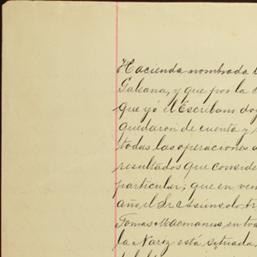 Hacienda nombrada
Galiana, y que por la
que yó el Escribano doy
quedaron de cuenta y
todas las operaciones
resultados que conside
particular; que en ven
año, el Sr. Asiensolo
Tomas Macmanus, en to
la Nariz está situada,